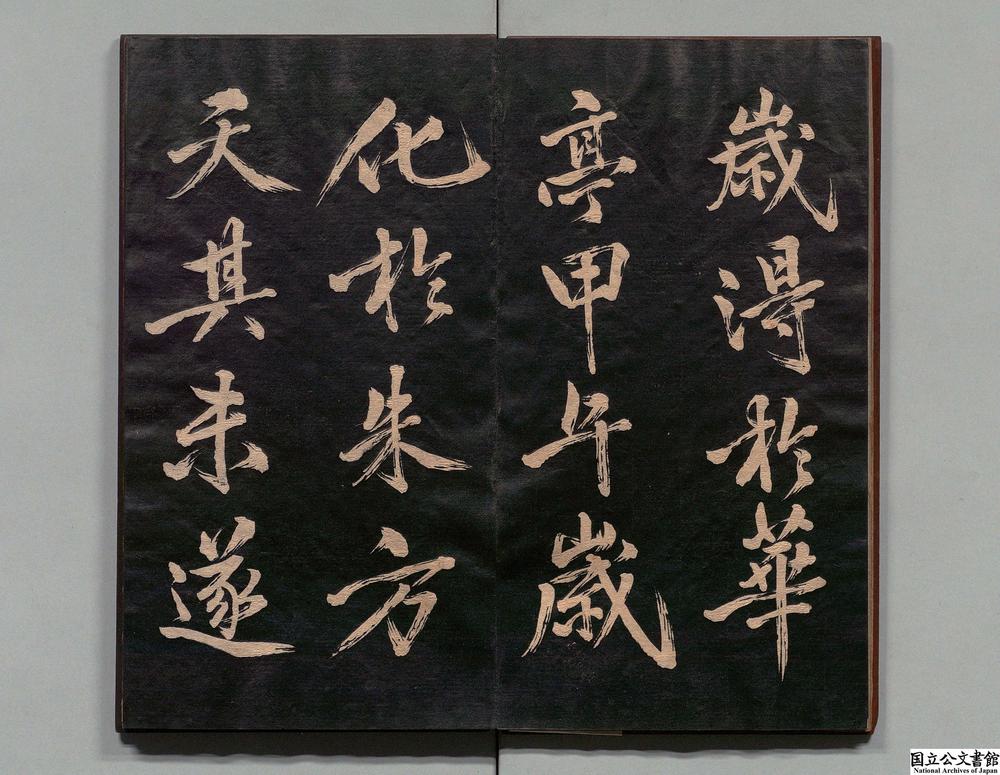 歳得於華
亭甲午歳
化於朱方
天其未遂
国立公文書館
National Archives of Japan